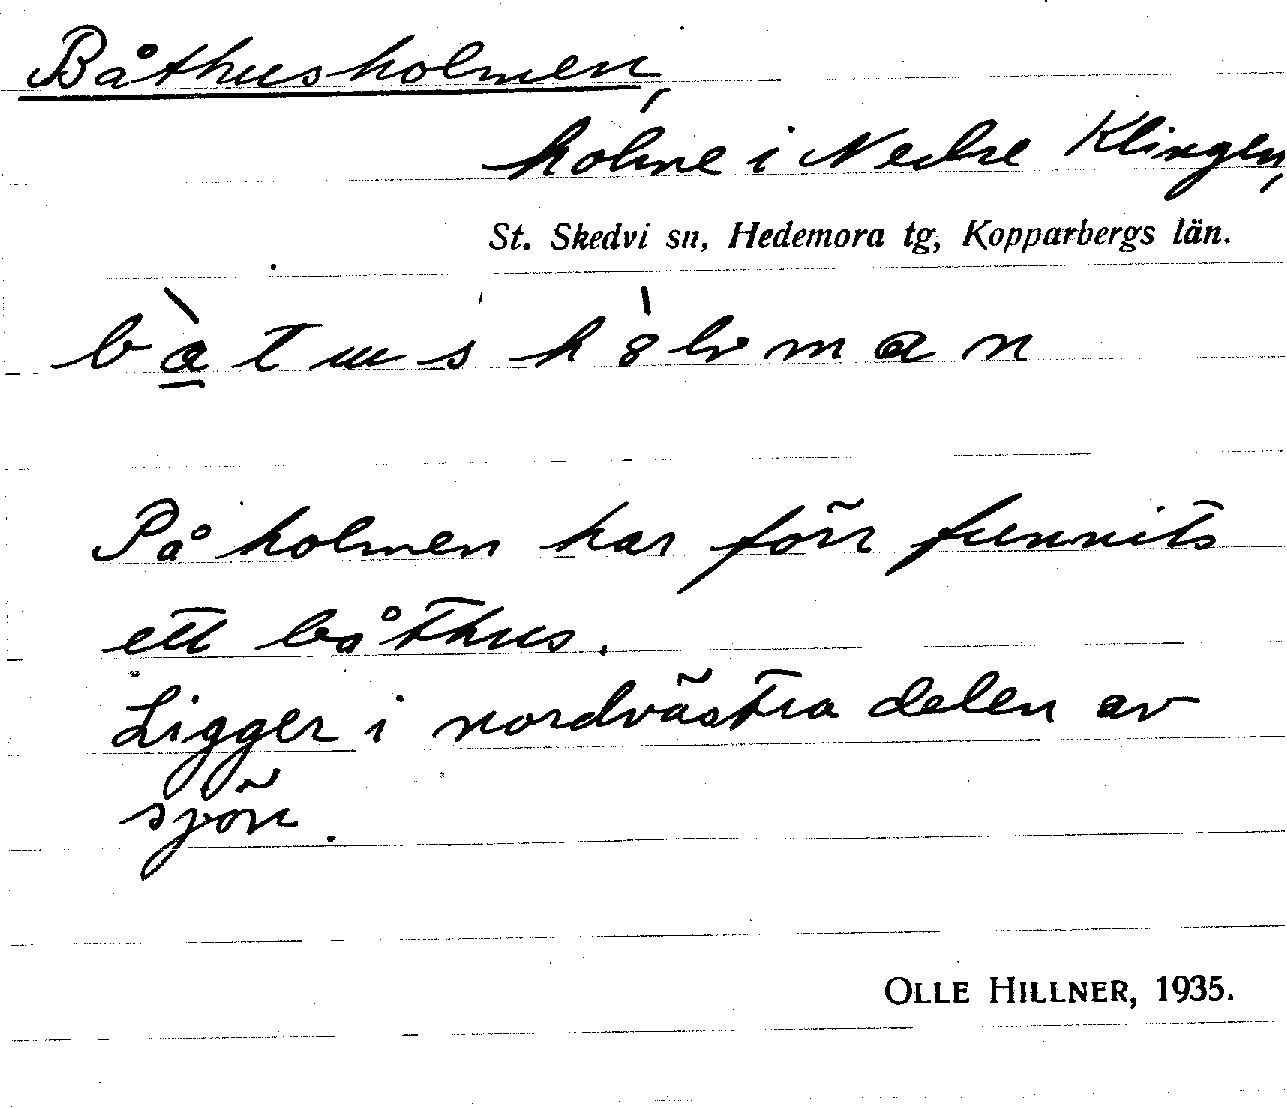 Båthusholmen,
holme i Nedre Klingen,
St. Skedvi sn, Hedemora tg, Kopparbergs län.
På holmen har förr funnits
ett båthus.
Ligger i nordvästra delen av
sjön.
OLLE HILLNER, 1935.